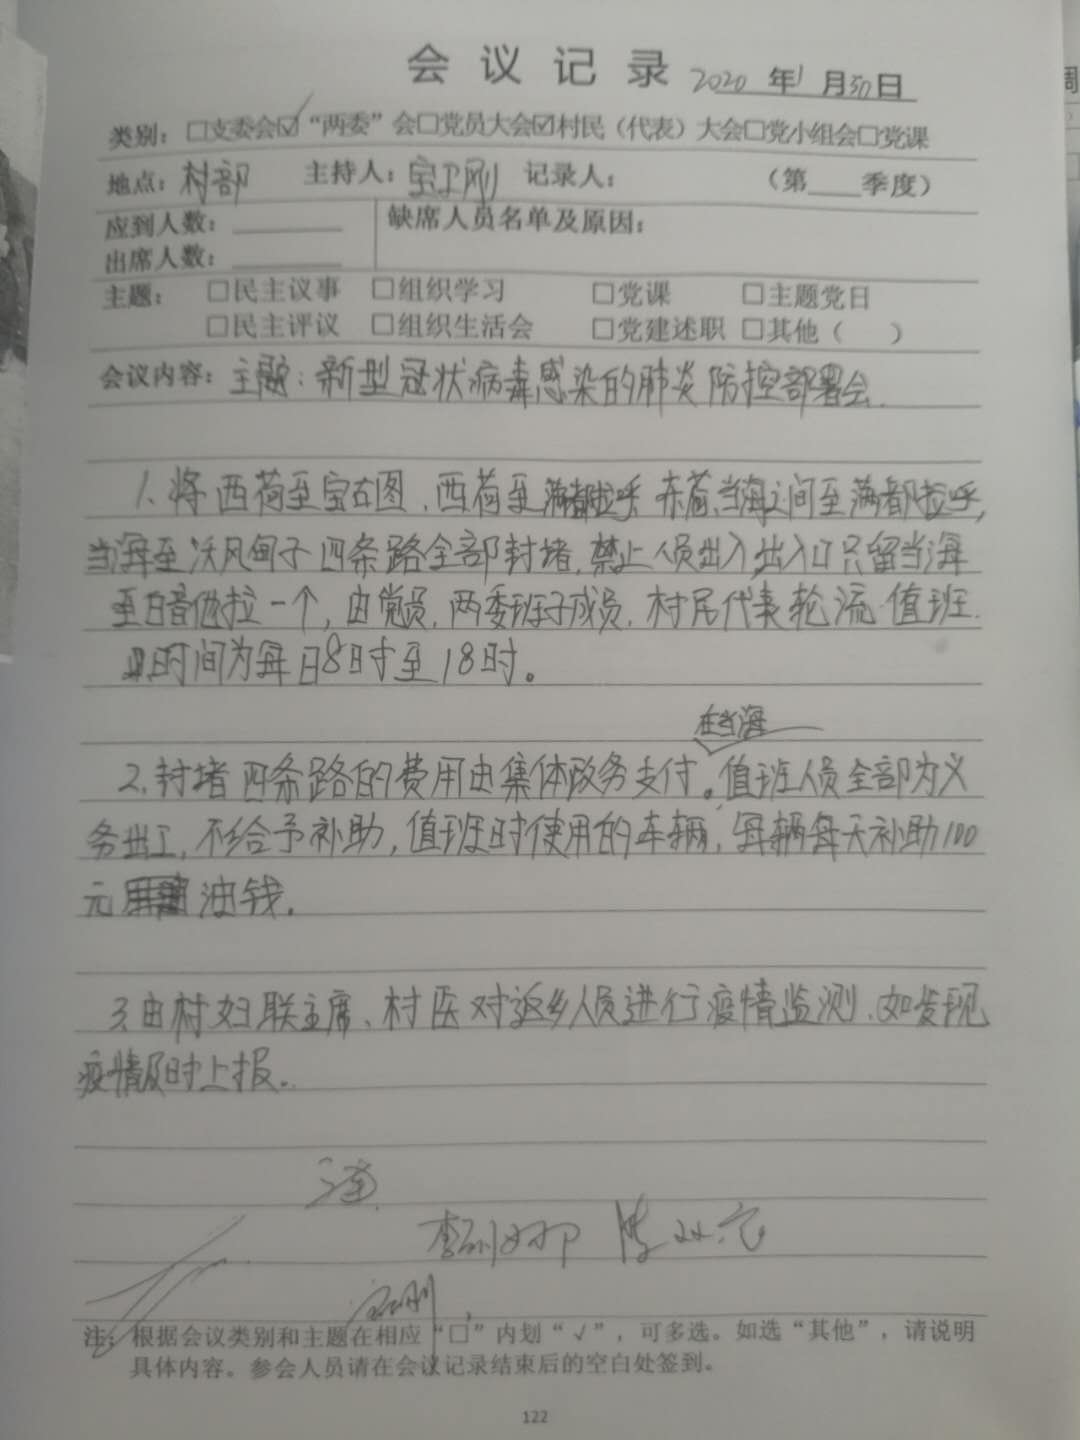 会议记录 2020年1月30日
类别：□支委会☑“两委”会□党员大会☑村民（代表）大会□党小组会□党课
地点：村部 主持人：宝卫刚 记录人： （第____季度）
应到人数：
缺席人员名单及原因：
出席人数：
主题： □民主议事 □组织学习 □党课 □主题党日
□民主评议 □组织生活会 □党建述职 □其他（ ）
会议内容：主题：新型冠状病毒感染的肺炎防控部署会.
1、将西荷至宝古图、西荷至满都拉乎、东荷、当海之间至满都拉乎,
当海至沃风甸子四条路全部封堵,禁止人员出入,出入口只留当海
至白音他拉一个,由党员,两委班子成员,村民代表轮流值班.
时间为每日8时至18时。
在当海
2.封堵四条路的费用由集体政务支付。值班人员全部为义
务出工,不给予补助,值班时使用的车辆,每辆每天补助100
元 油钱.
3.由村妇联主席、村医对返乡人员进行疫情监测,如发现
疫情及时上报..
注：根据会议类别和主题在相应“□”内划“√”，可多选。如选“其他”，请说明
具体内容。参会人员请在会议记录结束后的空白处签到。
122